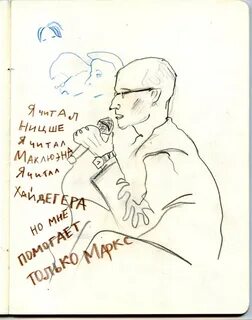 Я читал
Ницше
Я читал
Маклюэна
Я читал
Хайдегера
но мне
помогает
только Маркс